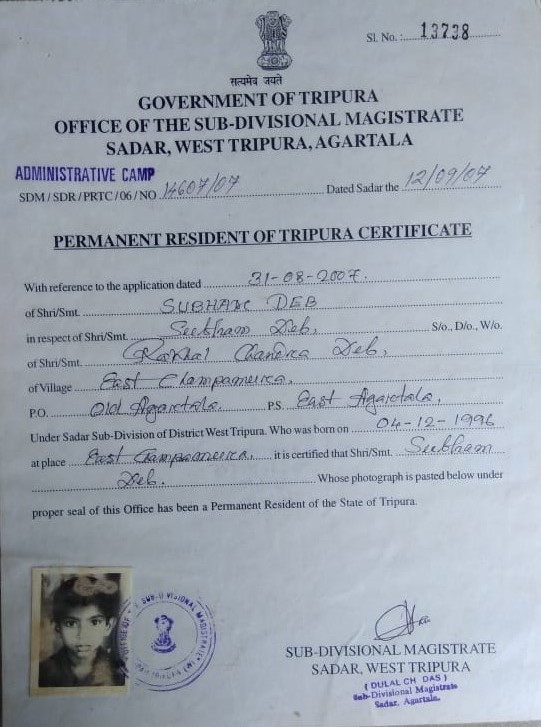 Sl. No. :..... 13738
सत्यमेव जयते
GOVERNMENT OF TRIPURA
OFFICE OF THE SUB-DIVISIONAL MAGISTRATE
SADAR, WEST TRIPURA, AGARTALA
ADMINISTRATIVE CAMP
SDM / SDR / PRTC / 06 / NO 14607/07 Dated Sadar the 12/09/07
PERMANENT RESIDENT OF TRIPURA CERTIFICATE
With reference to the application dated 31-08-2007.
of Shri/Smt. SUBHAM DEB
in respect of Shri/Smt. Subham Deb, S/o., D/o., W/o.
of Shri/Smt. Rakhal Chandra Deb,
of Village East Champamura,
P.O. Old Agartala. P.S. East Agartala,
Under Sadar Sub-Division of District West Tripura. Who was born on 04-12-1996
at place East Champamura, it is certified that Shri/Smt. Subham
Deb. Whose photograph is pasted below under
proper seal of this Office has been a Permanent Resident of the State of Tripura.
SUB-DIVISIONAL MAGISTRATE
SADAR, WEST TRIPURA
( DULAL CH DAS )
Sub-Divisional Magistrate
Sadar, Agartala.